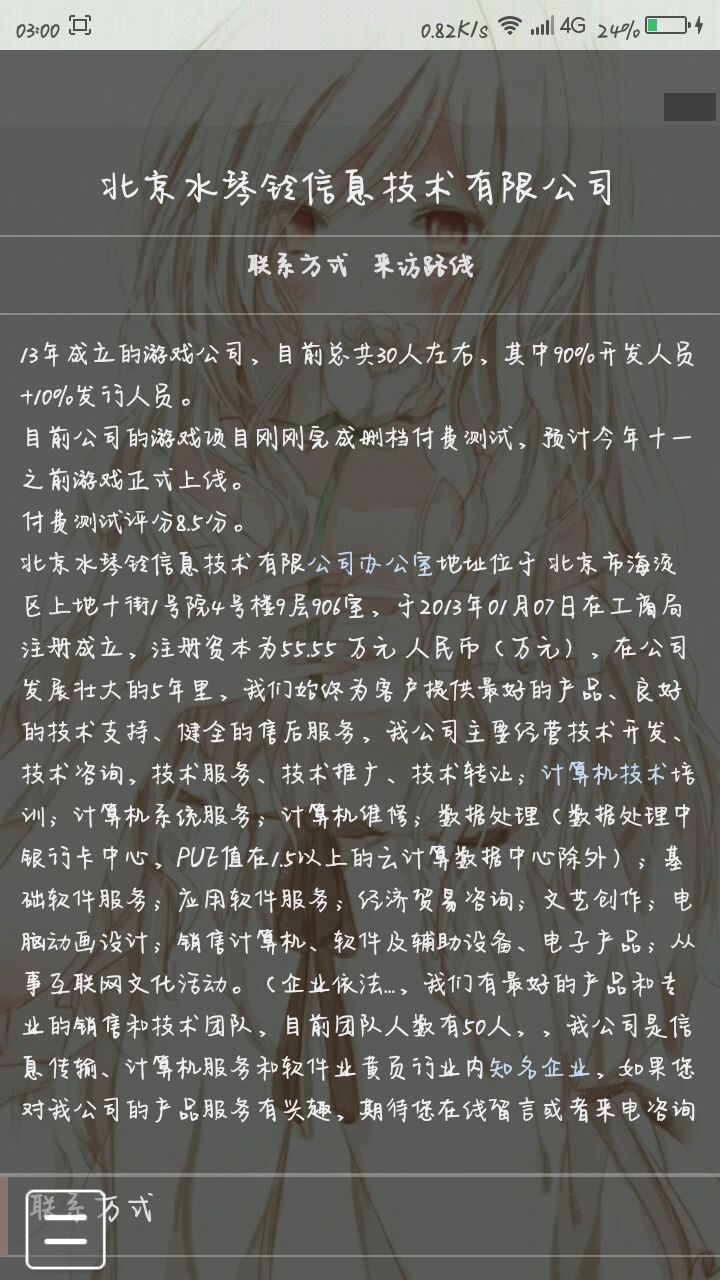 03:00 0.82K/s 4G 24%
北京水琴铃信息技术有限公司
联系方式 来访路线
13年成立的游戏公司，目前总共30人左右，其中90%开发人员
+10%发行人员。
目前公司的游戏项目刚刚完成删档付费测试，预计今年十一
之前游戏正式上线。
付费测试评分8.5分。
北京水琴铃信息技术有限公司办公室地址位于 北京市海淀
区上地十街1号院4号楼9层906室，于2013年01月07日在工商局
注册成立，注册资本为55.55 万元 人民币（万元），在公司
发展壮大的5年里，我们始终为客户提供最好的产品、良好
的技术支持、健全的售后服务，我公司主要经营技术开发、
技术咨询，技术服务、技术推广、技术转让；计算机技术培
训；计算机系统服务；计算机维修；数据处理（数据处理中
银行卡中心，PUE值在1.5以上的云计算数据中心除外）；基
础软件服务；应用软件服务；经济贸易咨询；文艺创作；电
脑动画设计；销售计算机、软件及辅助设备、电子产品；从
事互联网文化活动。（企业依法...，我们有最好的产品和专
业的销售和技术团队，目前团队人数有50人，，我公司是信
息传输、计算机服务和软件业黄页行业内知名企业，如果您
对我公司的产品服务有兴趣，期待您在线留言或者来电咨询
联系方式